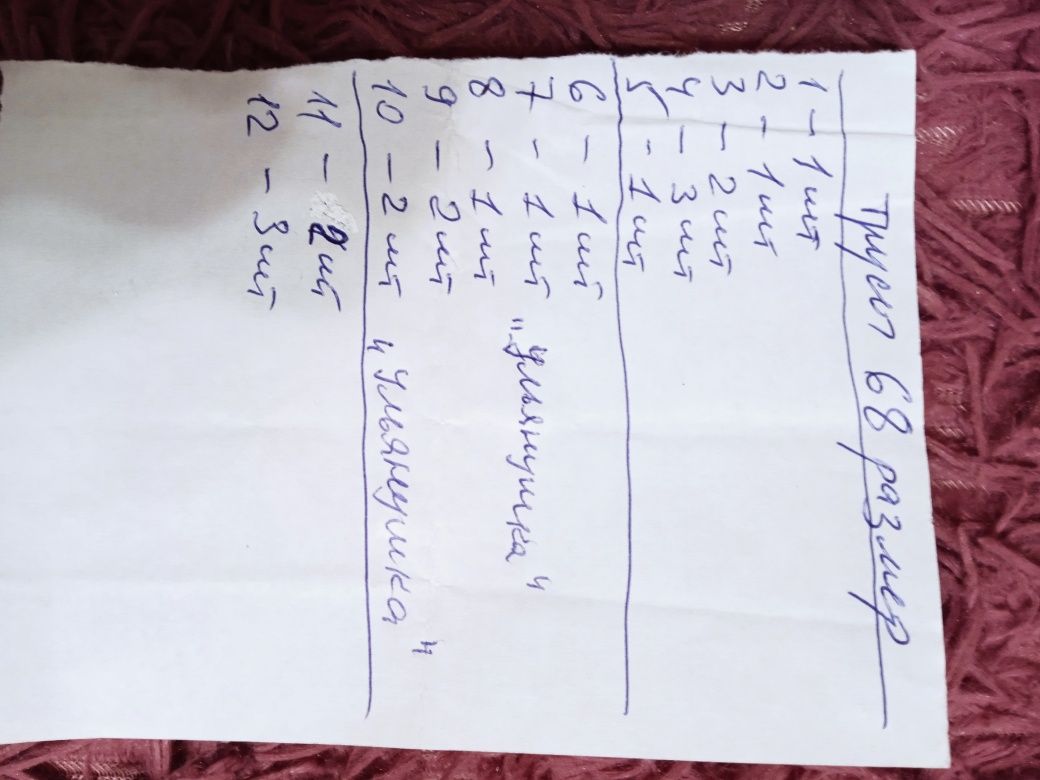 Трусы 68 размер
1 - 1 шт
2 - 1 шт
3 - 2 шт
4 - 3 шт
5 - 1 шт
6 - 1 шт
7 - 1 шт "Ульянушка"
8 - 1 шт
9 - 2 шт
10 - 2 шт "Ульянушка"
11 - 2 шт
12 - 3 шт